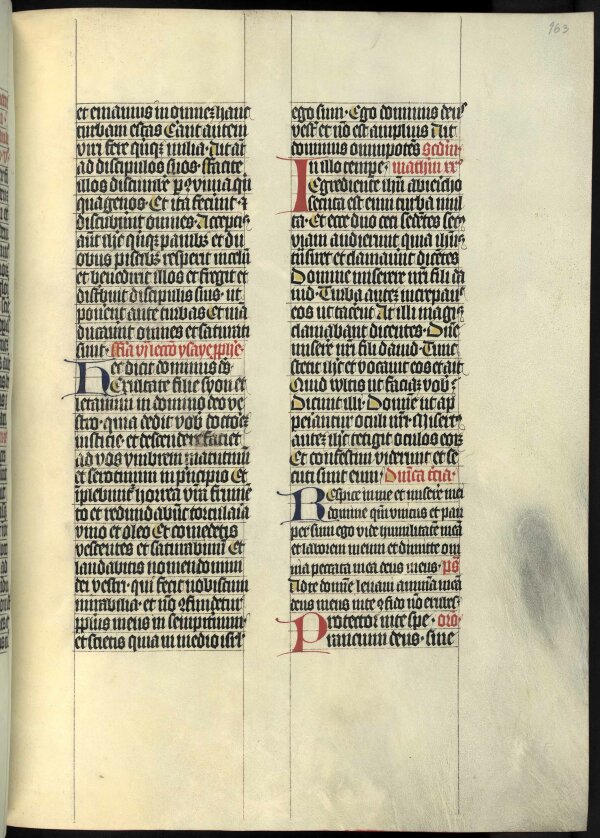 963
et emamus in omnez hanc
turbam escas Erant autem
viri fere qnqz milia · Ait aut
ad discipulos suos · ffacite
illos discumbere p ꝯuivia qn
quagenos · Et ita fecerunt · ⁊
discubuerunt omnes · Acceptis
aut ihe qnqz panibz et du
obus piscibz respexit in celum
et benedixit illos et fregit et
distribuit discipulis suis · ut
ponerent ante turbas Et man
ducaverunt omnes et saturati
sunt ·
Hec dicit dominus
Exultate filie syon et
letamini in domino deo ve
stro · quia dedit vobis doctorem
iusticie · et descendere faciet
ad vos ymbrem matutinum
et serotinum in principio Et
implebuntur horrea vestra frumen
to et redundabunt torcularia
vino et oleo Et comedetis
vescentes et saturabimini Et
laudabitis nomen domini
dei vestri · qui fecit vobiscum
mirabilia · et non ꝯfundetur
ppl'us meus in sempiternum
et scietis quia in medio isrl
ego sum · Ego dominus deus
vester et no est amplius Ait
dominus omnipotens
In illo tempe · mathm xx
Egrediente ihu ab iericho
secuta est eum turba mul
ta · Et ecce duo ceci sedentes sec
viam audierunt quia ihus
transiret et clamaverunt dicentes
Domine miserere nri fili da
uid · Turba autez increpabat
eos ut tacerent At illi magis
clamabant dicentes · Dne
miserere nri fili david · Et
stetit ihe et vocavit eos et ait
Quid vultis ut faciaz vobis
Dicunt illi · Domine ut ap
periantur oculi nri · Misertus
autez ihe tetigit oculos eorz
Et confestim viderunt et se
cuti sunt eum · Dnica tercia
Respice in me et miserere mei
domine qm unicus et pau
per sum ego vide humilitatem meam
et laborem meum et dimitte om
nia peccata mea deus meus · ps
Ad te domine levavi animam mea
deus meus in te ꝯfido no erubes
Protector in te spe · oro
Prancium deus · sive